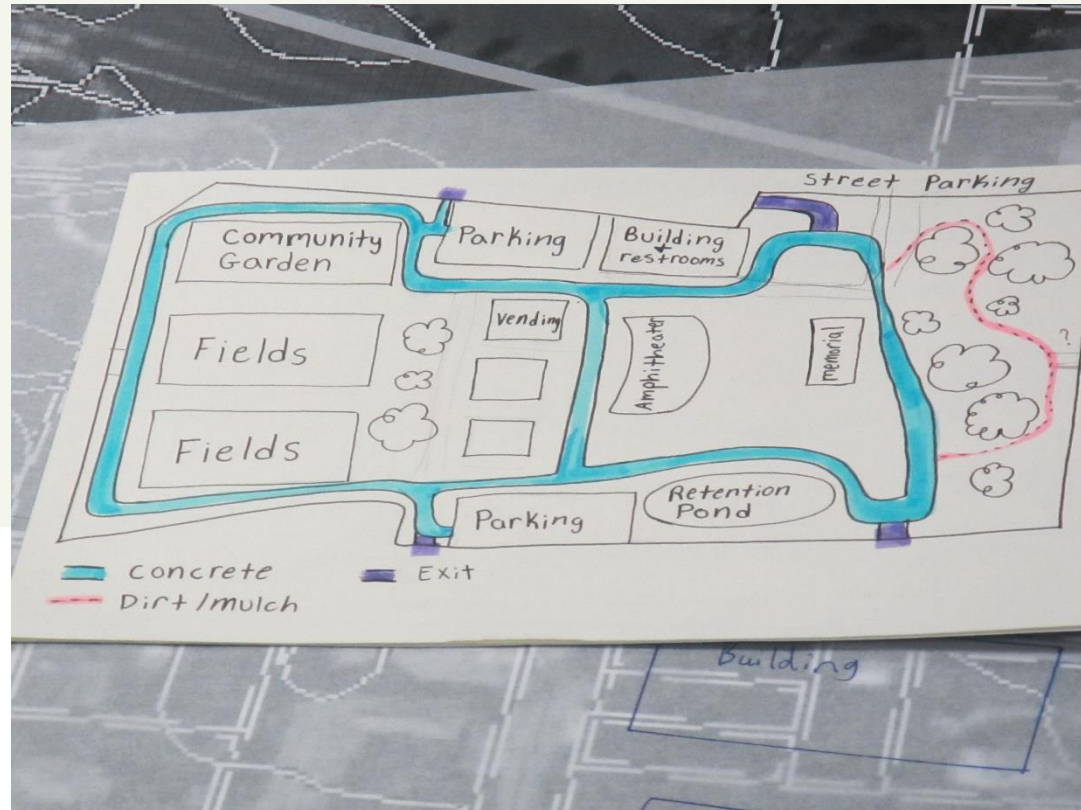 Street Parking
Community
Garden
Parking
Building
+
restrooms
Vending
Fields
Amphitheater
memorial
?
Fields
Parking
Retention
Pond
Concrete
Exit
Dirt/mulch
Building